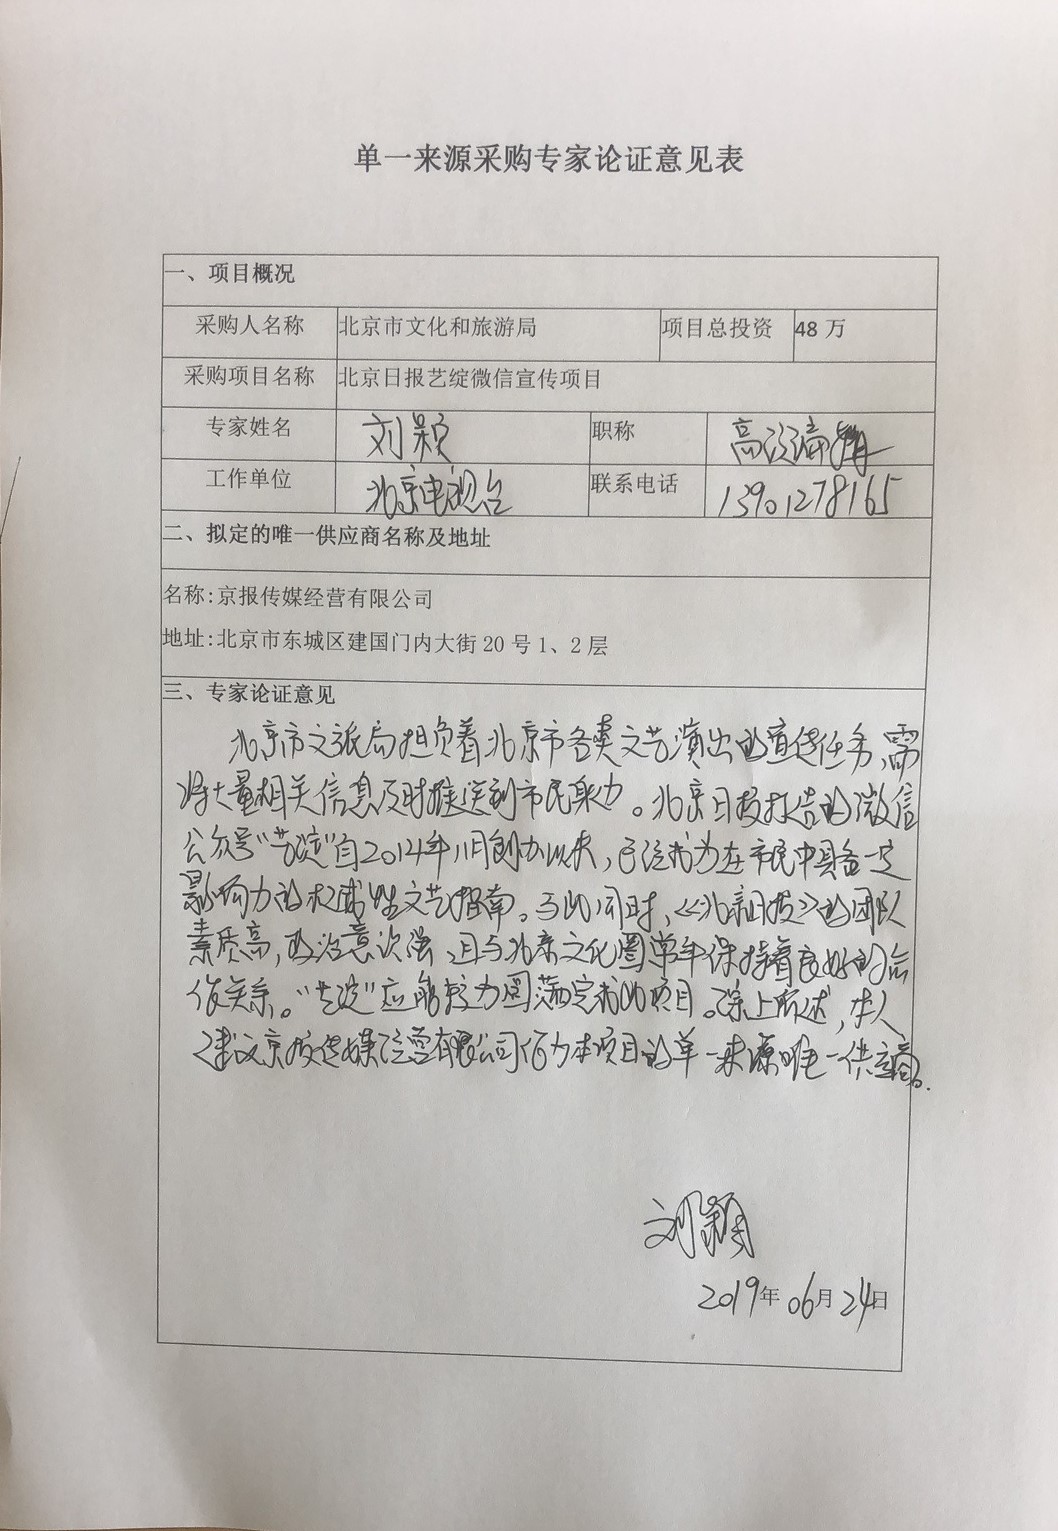 单一来源采购专家论证意见表
一、项目概况
采购人名称 北京市文化和旅游局 项目总投资 48 万
采购项目名称 北京日报艺绽微信宣传项目
专家姓名 刘颖 职称 高级编辑
工作单位 北京电视台 联系电话 13901278165
二、拟定的唯一供应商名称及地址
名称:京报传媒经营有限公司
地址:北京市东城区建国门内大街 20 号 1、2 层
三、专家论证意见
北京市文旅局担负着北京市各类文艺演出的宣传任务,需
将大量相关信息及时推送到市民身边。北京日报报告的微信
公众号"艺绽"自2014年11月创办以来,已经成为在市民中具备一定
影响力的权威性文艺指南。与此同时,《北京日报》的团队
素质高,政治意识强,且与北京文化圈常年保持着良好的合
作关系。"艺绽"应能较为圆满完成此项目。综上所述,本人
建议京报传媒经营有限公司作为本项目的单一来源唯一供应商。
刘颖
2019年06月24日